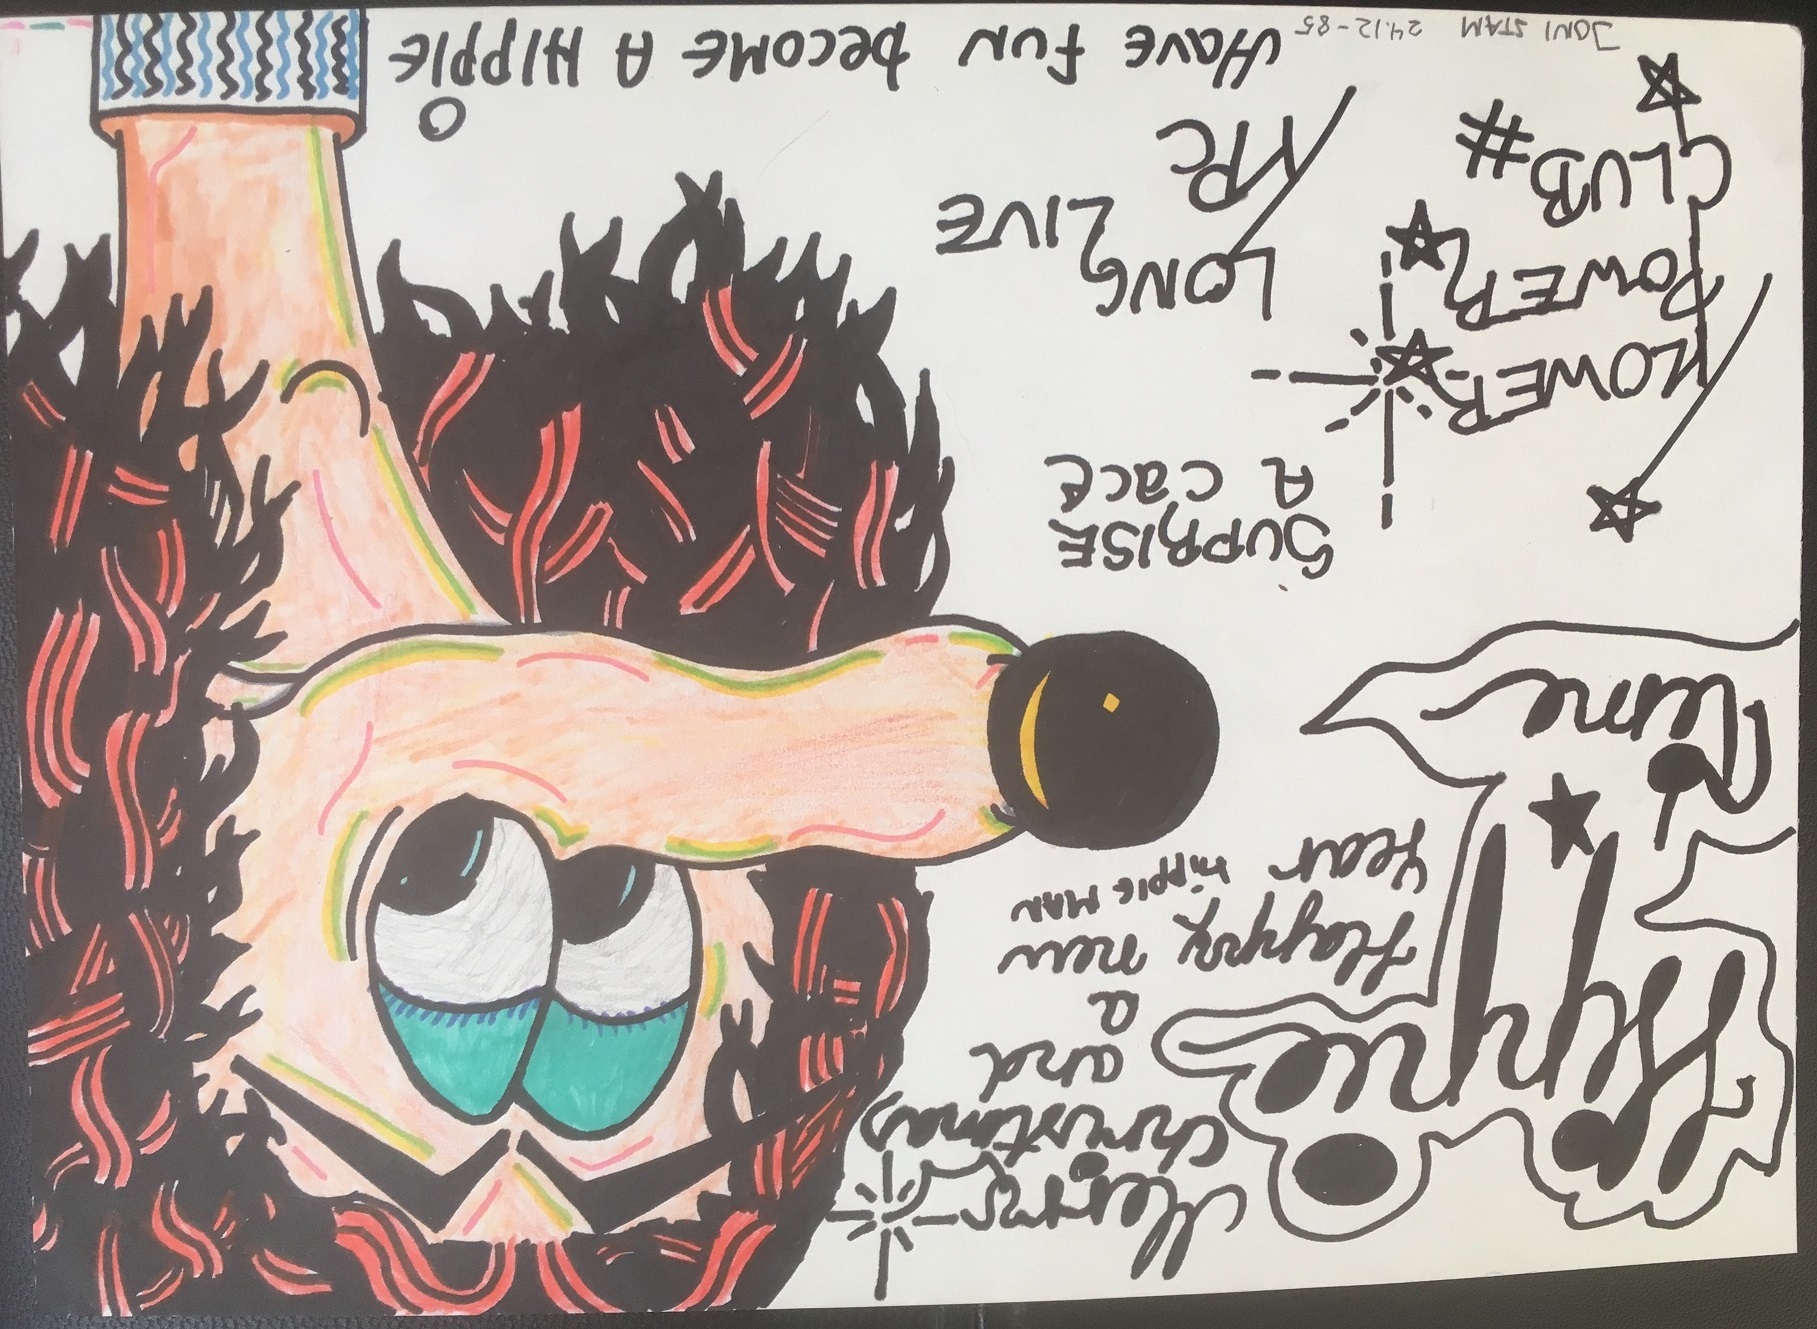 Hippie
Time
Merry
christmas
and
a
Happy new
Year hippie MAN
SUPRISE
A cace
FLOWER
POWER
CLUB #
LONG LIVE
FPC
HAVE FUN BECOME A HIPPIE
JONI STAM 24.12-85